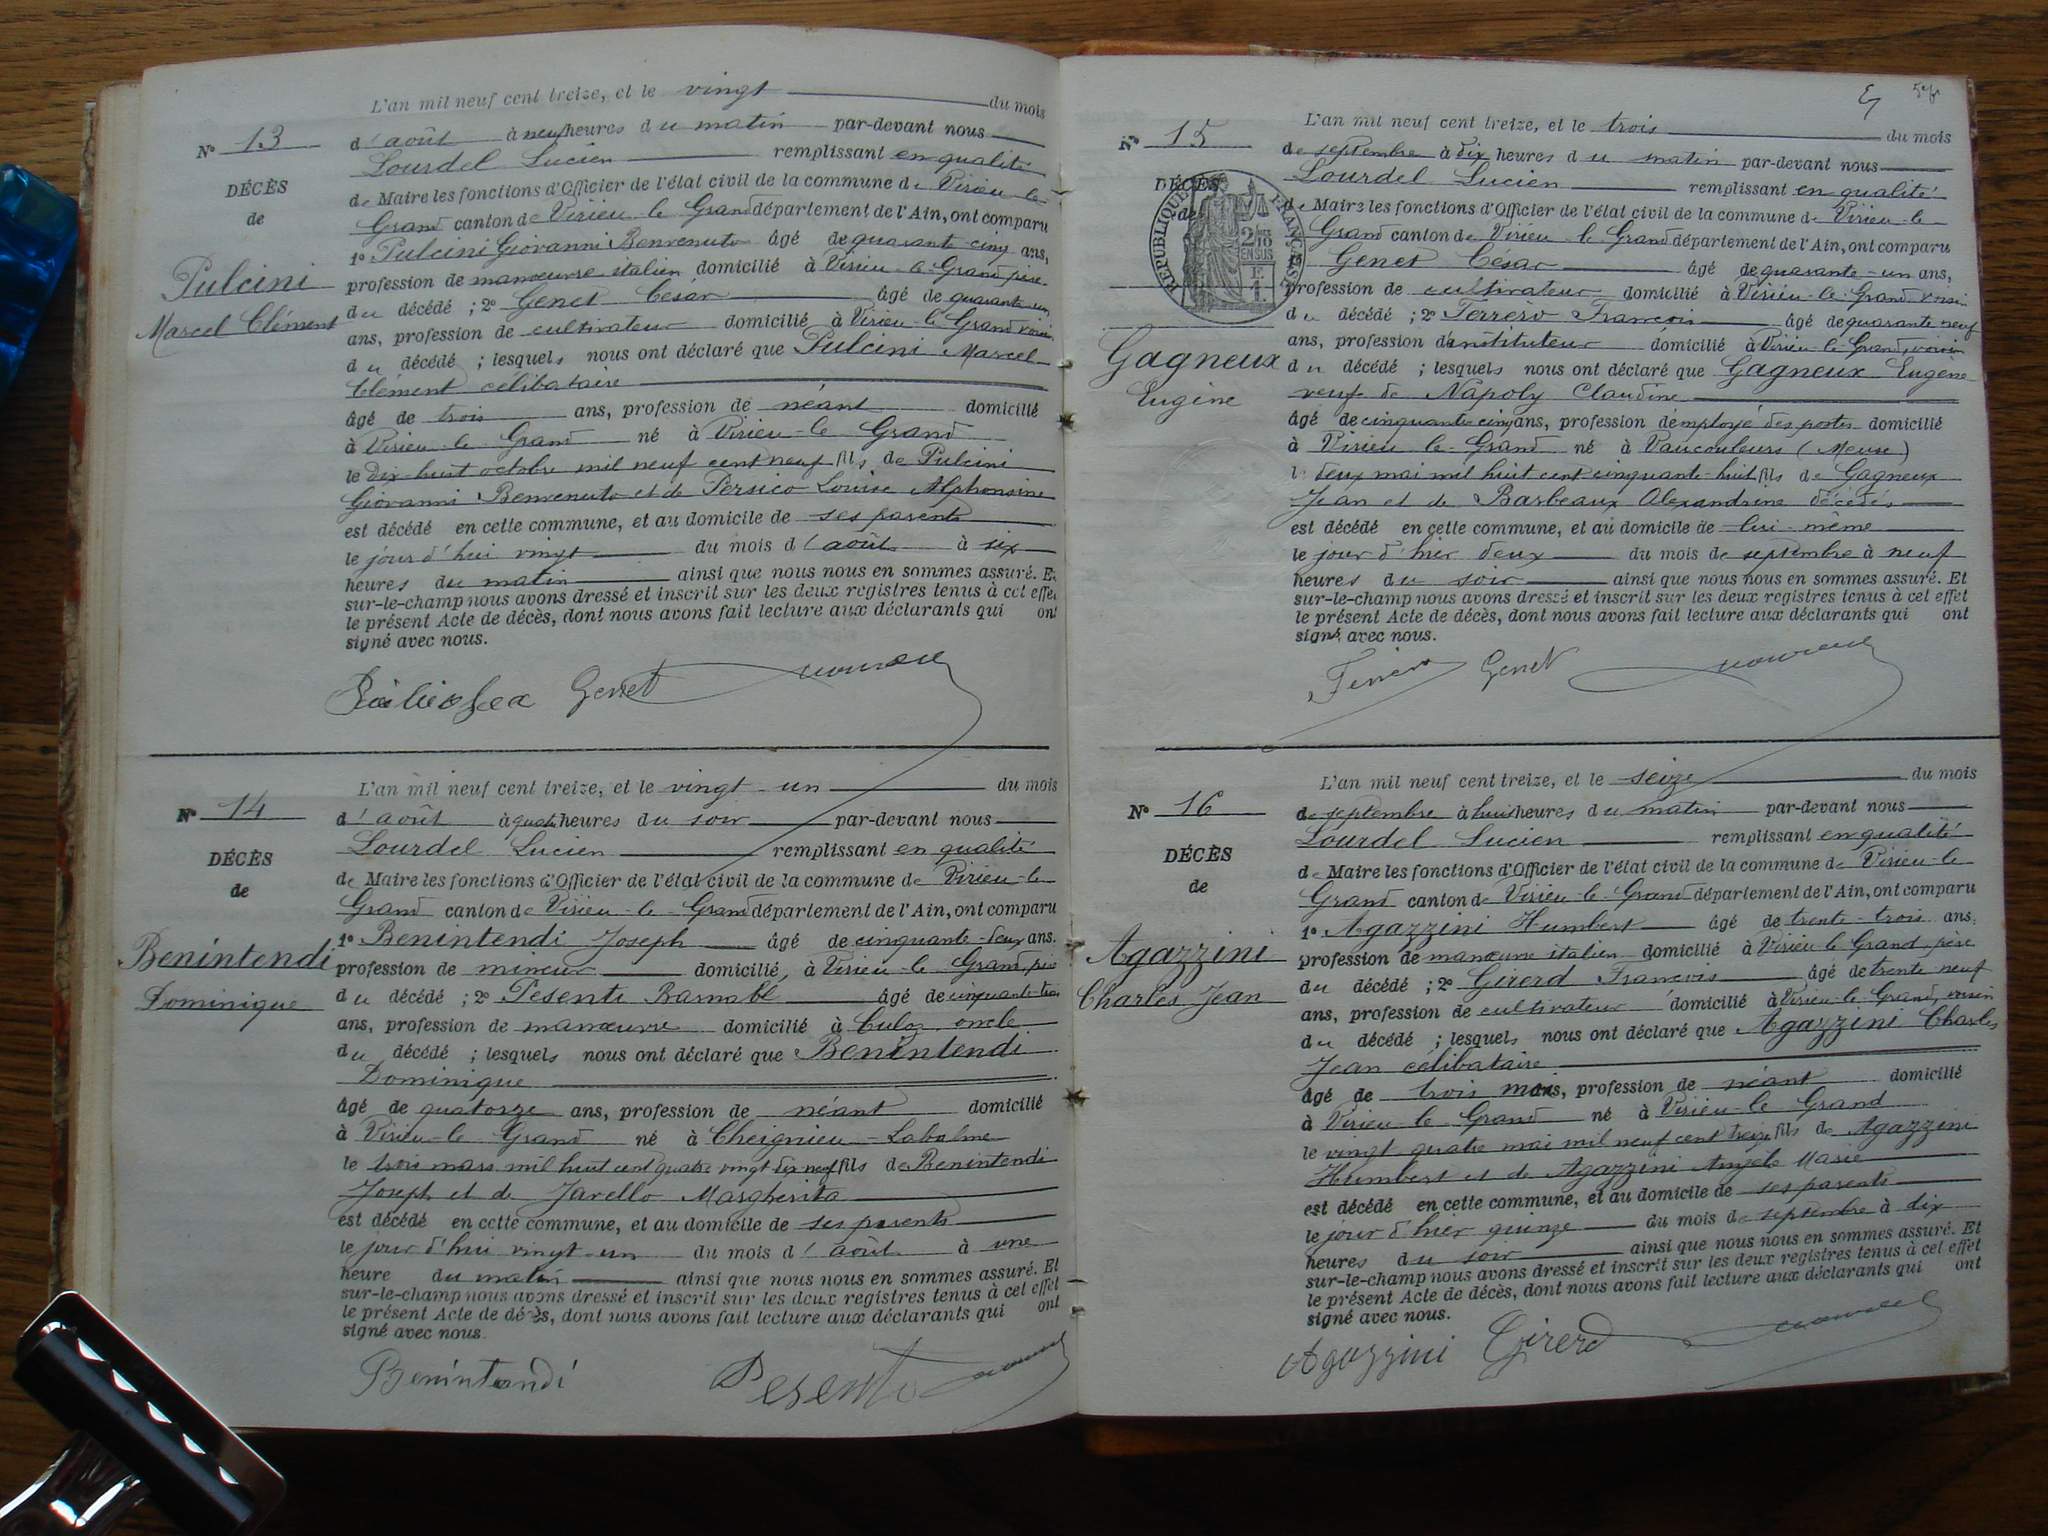 L'an mil neuf cent treize, et le vingt du mois
N° 13
d'août à neuf heures du matin par-devant nous
Lourdel Lucien remplissant en qualité
DÉCÈS
de Maire les fonctions d'Officier de l'état civil de la commune de Virieu-le-
de
Grand canton de Virieu-le-Grand département de l'Ain, ont comparu
1° Pulcini Giovanni Benvenuto âgé de quarante-cinq ans,
Pulcini
profession de manœuvre italien domicilié à Virieu-le-Grand, père
Marcel Clément
du décédé ; 2° Genet César âgé de quarante-un
ans, profession de cultivateur domicilié à Virieu-le-Grand, voisin
du décédé ; lesquels nous ont déclaré que Pulcini Marcel
Clément célibataire
âgé de trois ans, profession de néant domicilié
à Virieu-le-Grand né à Virieu-le-Grand
le dix-huit octobre mil neuf cent neuf fils de Pulcini
Giovanni Benvenuto et de Persico Louise Alphonsine
est décédé en cette commune, et au domicile de ses parents
le jour d'hui vingt du mois d'août à six
heures du matin ainsi que nous nous en sommes assuré. Et
sur-le-champ nous avons dressé et inscrit sur les deux registres tenus à cet effet
le présent Acte de décès, dont nous avons fait lecture aux déclarants qui ont
signé avec nous.
Genet
L'an mil neuf cent treize, et le vingt-un du mois
N° 14
d'août à quatre heures du soir par-devant nous
Lourdel Lucien remplissant en qualité
DÉCÈS
de Maire les fonctions d'Officier de l'état civil de la commune de Virieu-le-
de
Grand canton de Virieu-le-Grand département de l'Ain, ont comparu
1° Benintendi Joseph âgé de cinquante-deux ans.
Benintendi
profession de mineur domicilié à Virieu-le-Grand, père
Dominique
du décédé ; 2° Pesenti Barnabé âgé de cinquante-trois
ans, profession de manœuvre domicilié à Culoz, oncle
du décédé ; lesquels nous ont déclaré que Benintendi
Dominique
âgé de quatorze ans, profession de néant domicilié
à Virieu-le-Grand né à Cheignieu-Labalme
le trois mars mil huit cent quatre vingt dix neuf fils de Benintendi
Joseph et de Javello Margherita
est décédé en cette commune, et au domicile de ses parents
le jour d'hui vingt-un du mois d'août à une
heure du matin ainsi que nous nous en sommes assuré. Et
sur-le-champ nous avons dressé et inscrit sur les deux registres tenus à cet effet
le présent Acte de décès, dont nous avons fait lecture aux déclarants qui ont
signé avec nous.
Benintendi Pesenti
L'an mil neuf cent treize, et le trois du mois
N° 15
de septembre à dix heures du matin par-devant nous
Lourdel Lucien remplissant en qualité
DÉCÈS
de Maire les fonctions d'Officier de l'état civil de la commune de Virieu-le-
de
RÉPUBLIQUE FRANÇAISE
2/10 EN SUS
Grand canton de Virieu-le-Grand département de l'Ain, ont comparu
1° Genet César âgé de quarante-un ans,
profession de cultivateur domicilié à Virieu-le-Grand voisin
du décédé ; 2° Ferrero François âgé de quarante neuf
ans, profession d'instituteur domicilié à Virieu-le-Grand, voisin
Gagneux
Eugène
du décédé ; lesquels nous ont déclaré que Gagneux Eugène
veuf de Napoly Claudine
âgé de cinquante cinq ans, profession d'employé des postes domicilié
à Virieu-le-Grand né à Vaucouleurs (Meuse)
le deux mai mil huit cent cinquante-huit fils de Gagneux
Jean et de Barbeaux Alexandrine décédés
est décédé en cette commune, et au domicile de lui-même
le jour d'hier deux du mois de septembre à neuf
heures du soir ainsi que nous nous en sommes assuré. Et
sur-le-champ nous avons dressé et inscrit sur les deux registres tenus à cet effet
le présent Acte de décès, dont nous avons fait lecture aux déclarants qui ont
signé avec nous.
Genet
L'an mil neuf cent treize, et le seize du mois
N° 16
de septembre à huit heures du matin par-devant nous
Lourdel Lucien remplissant en qualité
DÉCÈS
de Maire les fonctions d'Officier de l'état civil de la commune de Virieu-le-
de
Grand canton de Virieu-le-Grand département de l'Ain, ont comparu
1° Agazzini Humbert âgé de trente-trois ans.
Agazzini
profession de manœuvre italien domicilié à Virieu-le-Grand, père
Charles Jean
du décédé ; 2° Girerd François âgé de trente neuf
ans, profession de cultivateur domicilié à Virieu-le-Grand, voisin
du décédé ; lesquels nous ont déclaré que Agazzini Charles
Jean célibataire
âgé de trois mois, profession de néant domicilié
à Virieu-le-Grand né à Virieu-le-Grand
le vingt quatre mai mil neuf cent treize fils de Agazzini
Humbert et de Agazzini Angèle Marie
est décédé en cette commune, et au domicile de ses parents
le jour d'hier quinze du mois de septembre à dix
heures du soir ainsi que nous nous en sommes assuré. Et
sur-le-champ nous avons dressé et inscrit sur les deux registres tenus à cet effet
le présent Acte de décès, dont nous avons fait lecture aux déclarants qui ont
signé avec nous.
Agazzini Girerd